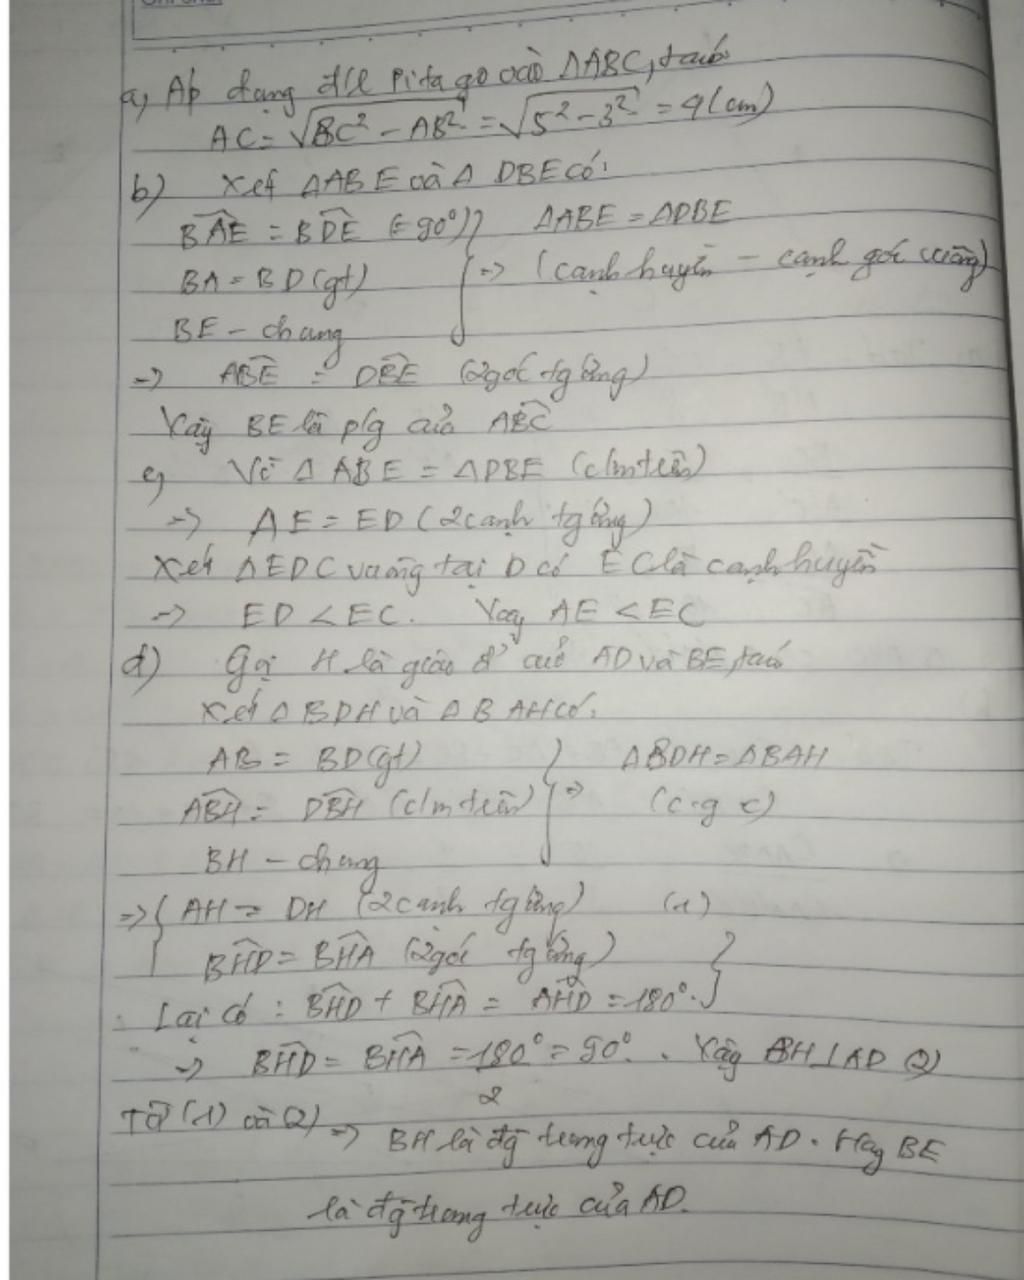 a, Áp dụng đ/l Pitago vào ΔABC, ta có
AC = √BC² - AB² = √5² - 3² = 4 (cm)
b) Xét ΔABE và Δ DBE có:
BÂE = BD̂E (= 90°) } ΔABE = ΔDBE
BA = BD (gt) } => (cạnh huyền - cạnh góc vuông)
BE - chung
=> AB̂E = DB̂E (2 góc tg ứng)
Vậy BE là p/g của AB̂C
c, Vì Δ ABE = ΔDBE (c/m trên)
=> AE = ED (2 cạnh tg ứng)
Xét ΔEDC vuông tại D có EC là cạnh huyền
=> ED < EC. Vậy AE < EC
d) Gọi H là giao đ' của AD và BE, ta có
Xét Δ BDH và Δ BAH có:
AB = BD (gt) } ΔBDH = ΔBAH
AB̂H = DB̂H (c/m trên) } => (c.g c)
BH - chung
=> { AH = DH (2 cạnh tg ứng) (1)
BĤD = BĤA (2 góc tg ứng) }
Lại có : BĤD + BĤA = AĤD = 180°. }
=> BĤD = BĤA = 180°/2 = 90°. Vậy BH ⊥ AD (2)
Từ (1) và (2) => BH là đg trung trực của AD. Hay BE
là đg trung trực của AD.